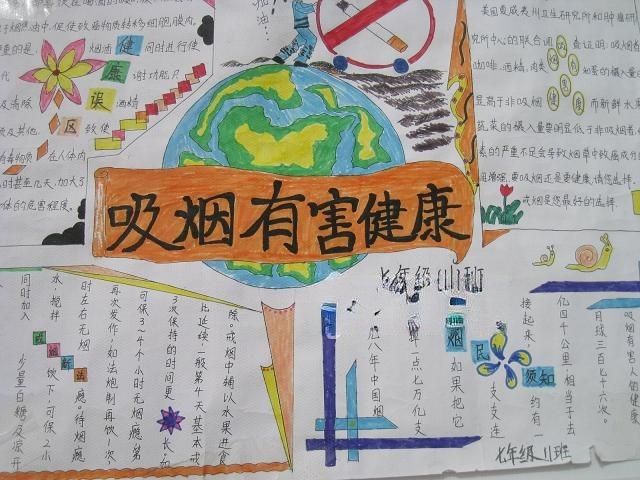 于烟油中,但使致癌物质转移细胞膜内,
健
康
误
区
同时进行使
谢功能只
酒精
致使
在人体内
体的危害程度.
加油
美国夏威夷州卫生研究所和肿瘤研
究所中心的联合调
查证明,吸烟
咖啡,酒精,肉类
显高于非吸烟
健
康
而新鲜水
蔬菜的摄入量要明显低于非吸烟
素的严重不足会导致烟草中致癌成
要吸烟还是要健康,请您选择.
戒烟是您最好的选择.
吸烟有害健康
七年级(11)班
除。戒烟中辅以水果进食
比延续一般第4天基本戒
3次保持的时间更长,如
可保3~4个小时无烟瘾第
再次发作,如法炮制再饮1次,
时左右无烟瘾。待烟瘾
水,搅拌
饮下,可保2小
同时加入
少量白糖及凉开
吸烟有害人的健康
月球三百七十六次。
亿四千公里,相当于去
接起来,
约有一
烟
民
须知
支支连
如果把它
一点七万亿支
九八年中国烟
七年级11班